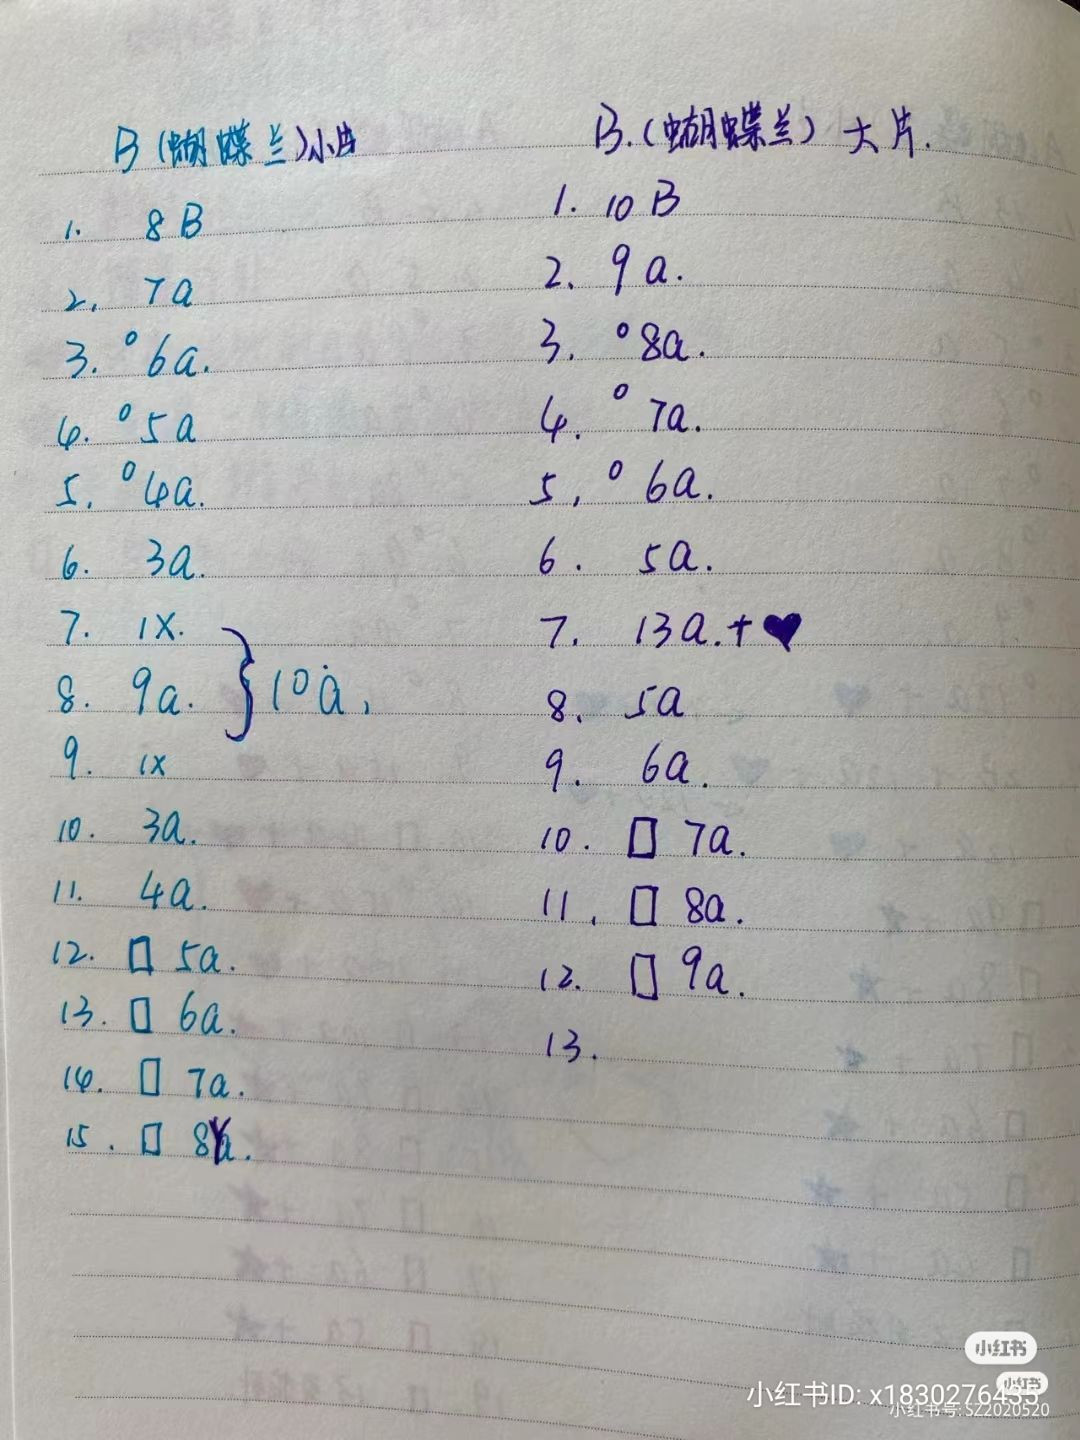 B（蝴蝶兰）小片
1. 8B
2. 7a
3. °6a.
4. °5a
5. °4a.
6. 3a.
7. 1X.
8. 9a. } 10a.
9. 1X
10. 3a.
11. 4a.
12. □ 5a.
13. □ 6a.
14. □ 7a.
15. □ 8Y.
B.（蝴蝶兰）大片.
1. 10B
2. 9a.
3. °8a.
4. °7a.
5. °6a.
6. 5a.
7. 13a.+♥
8. 5a
9. 6a.
10. □ 7a.
11. □ 8a.
12. □ 9a.
13.
小红书
小红书
小红书ID: x1830276435
小红书号: SZ2020520